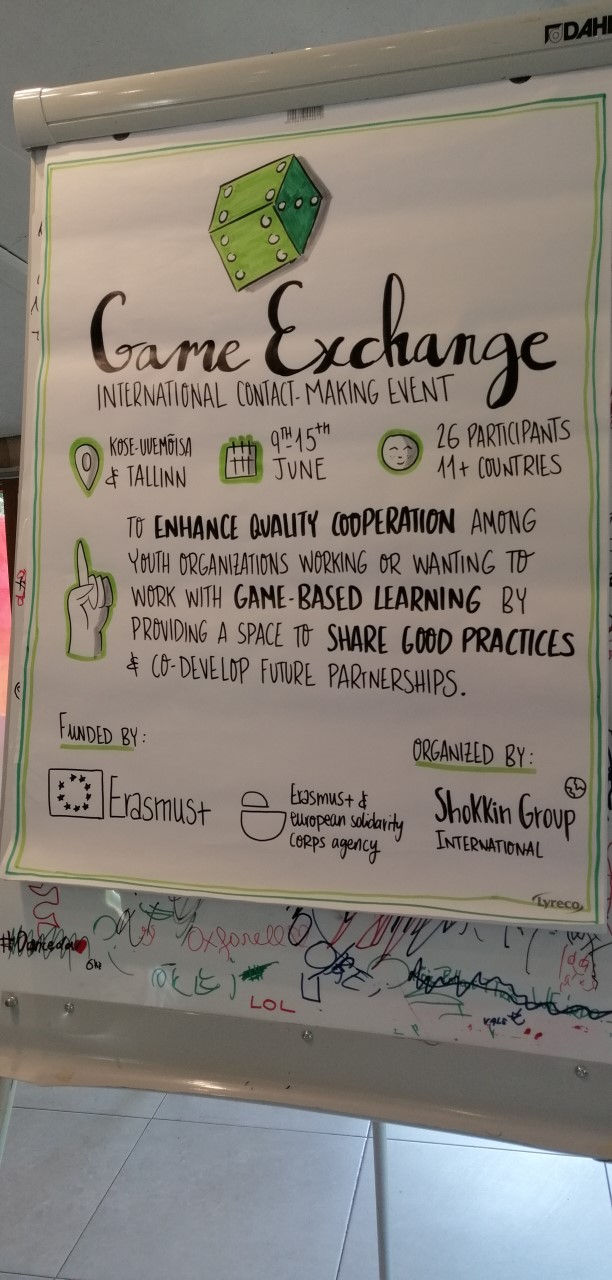 DAHL
Game Exchange
INTERNATIONAL CONTACT-MAKING EVENT
KOSE-UUEMÕISA
& TALLINN
9TH-15TH
JUNE
26 PARTICIPANTS
11+ COUNTRIES
TO ENHANCE QUALITY COOPERATION AMONG
YOUTH ORGANIZATIONS WORKING OR WANTING TO
WORK WITH GAME-BASED LEARNING BY
PROVIDING A SPACE TO SHARE GOOD PRACTICES
& CO-DEVELOP FUTURE PARTNERSHIPS.
FUNDED BY:
Erasmus+
Erasmus+ &
european solidarity
CORPS agency
ORGANIZED BY:
Shokkin Group
INTERNATIONAL
Lyreco
LOL